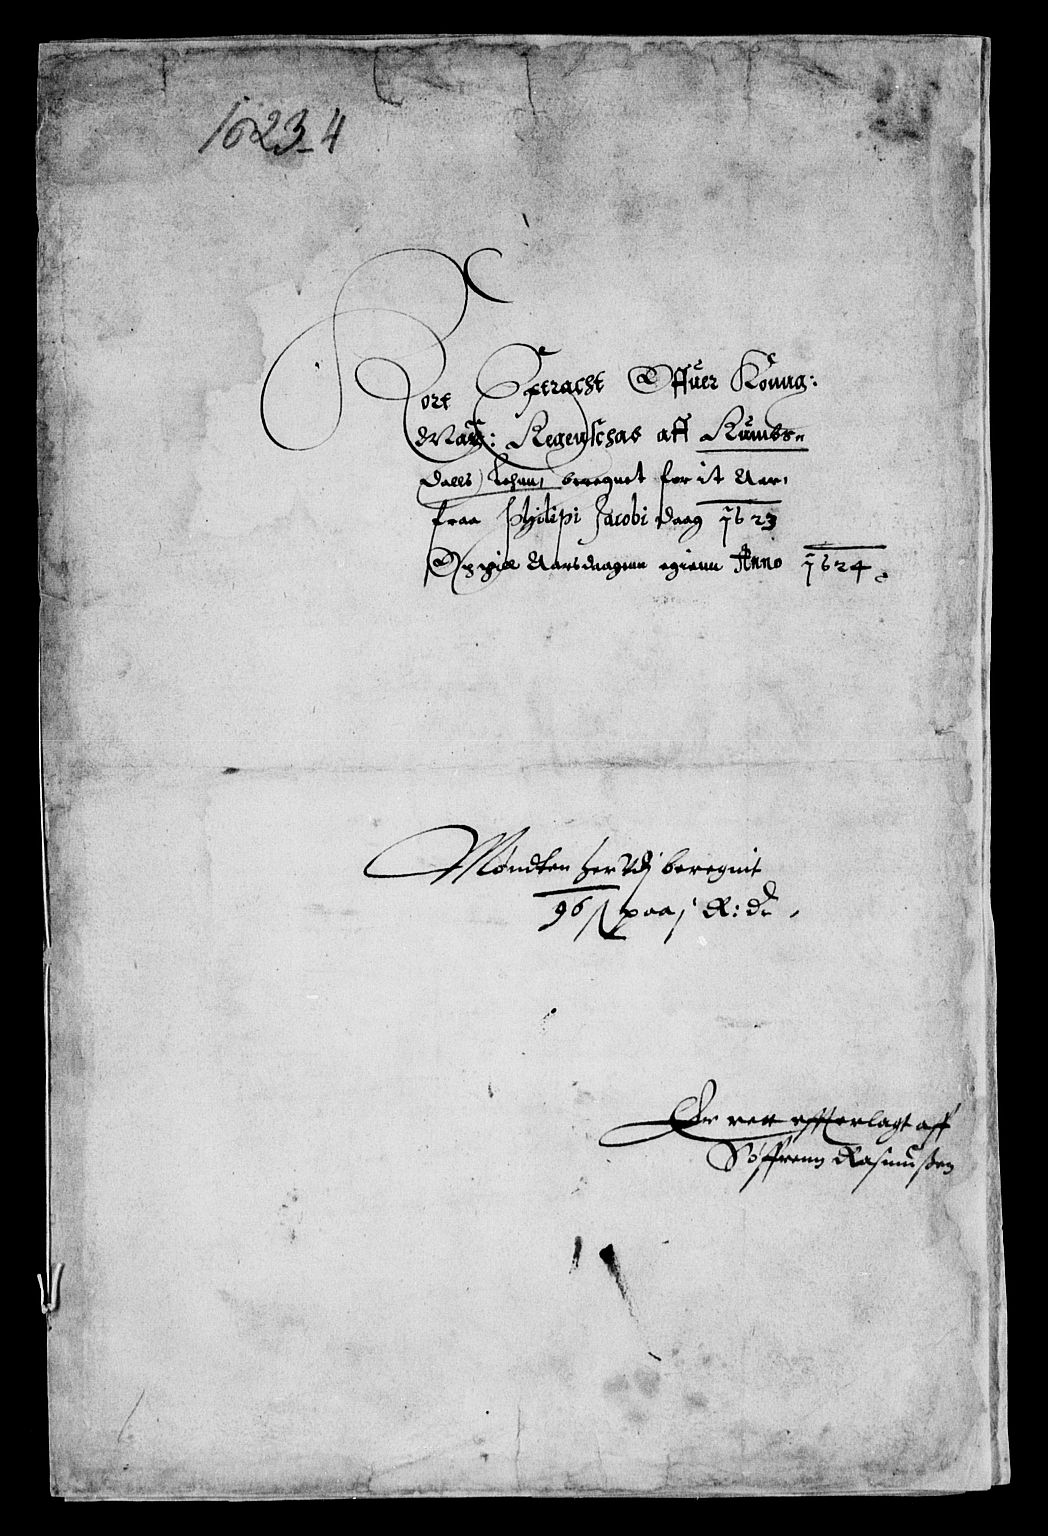 1623-4
Kort Extracht Offuer Konng:
Maÿ: Regenschab aff Rumbs-
dalls Lehnn, beregnet for it Aar,
fraa Philipi Jacobi daag 1623
Og till Aarsdagenn egienn Anno 1624.
Mÿndten her vdj beregnit
96 ß paa j R: dr.
Er rett offuerlagt aff
Søffrenn Rasmußen